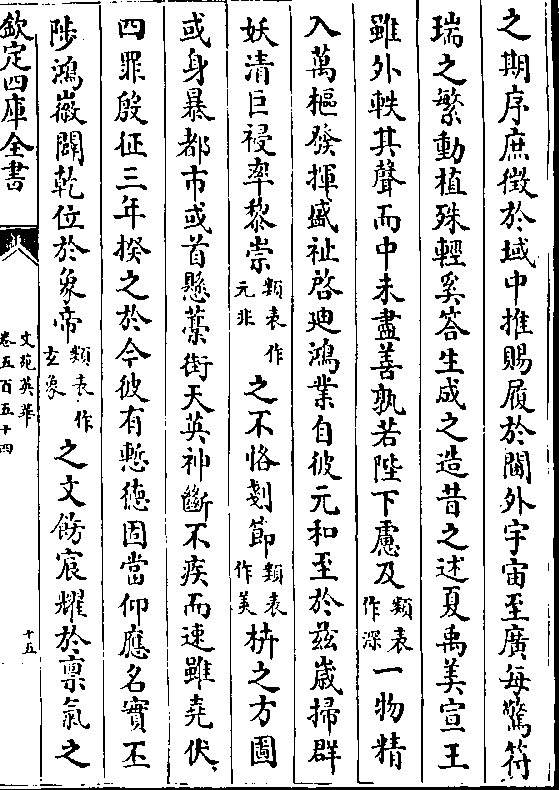 之期序庶徴於域中推賜履於閫外宇宙至廣每驚符
瑞之繁動植殊輕奚答生成之造昔之述夏禹美宣王
雖外軼其聲而中未盡善孰若陛下慮及類表作深一物精
入萬樞發揮盛祉啓廸鴻業自彼元和至於兹嵗掃群
妖清巨祲率黎崇類表作元非之不恪剗節類表作美栟之方圖
或身暴都市或首懸藁街天英神斷不疾而速雖堯伏
四罪殷征三年揆之於今彼有慙德固當仰應名實丕
陟鴻徽闢乾位於象帝類表作玄象之文餝宸耀於禀氣之
欽定四庫全書
文苑英華
卷五百五十四
十五